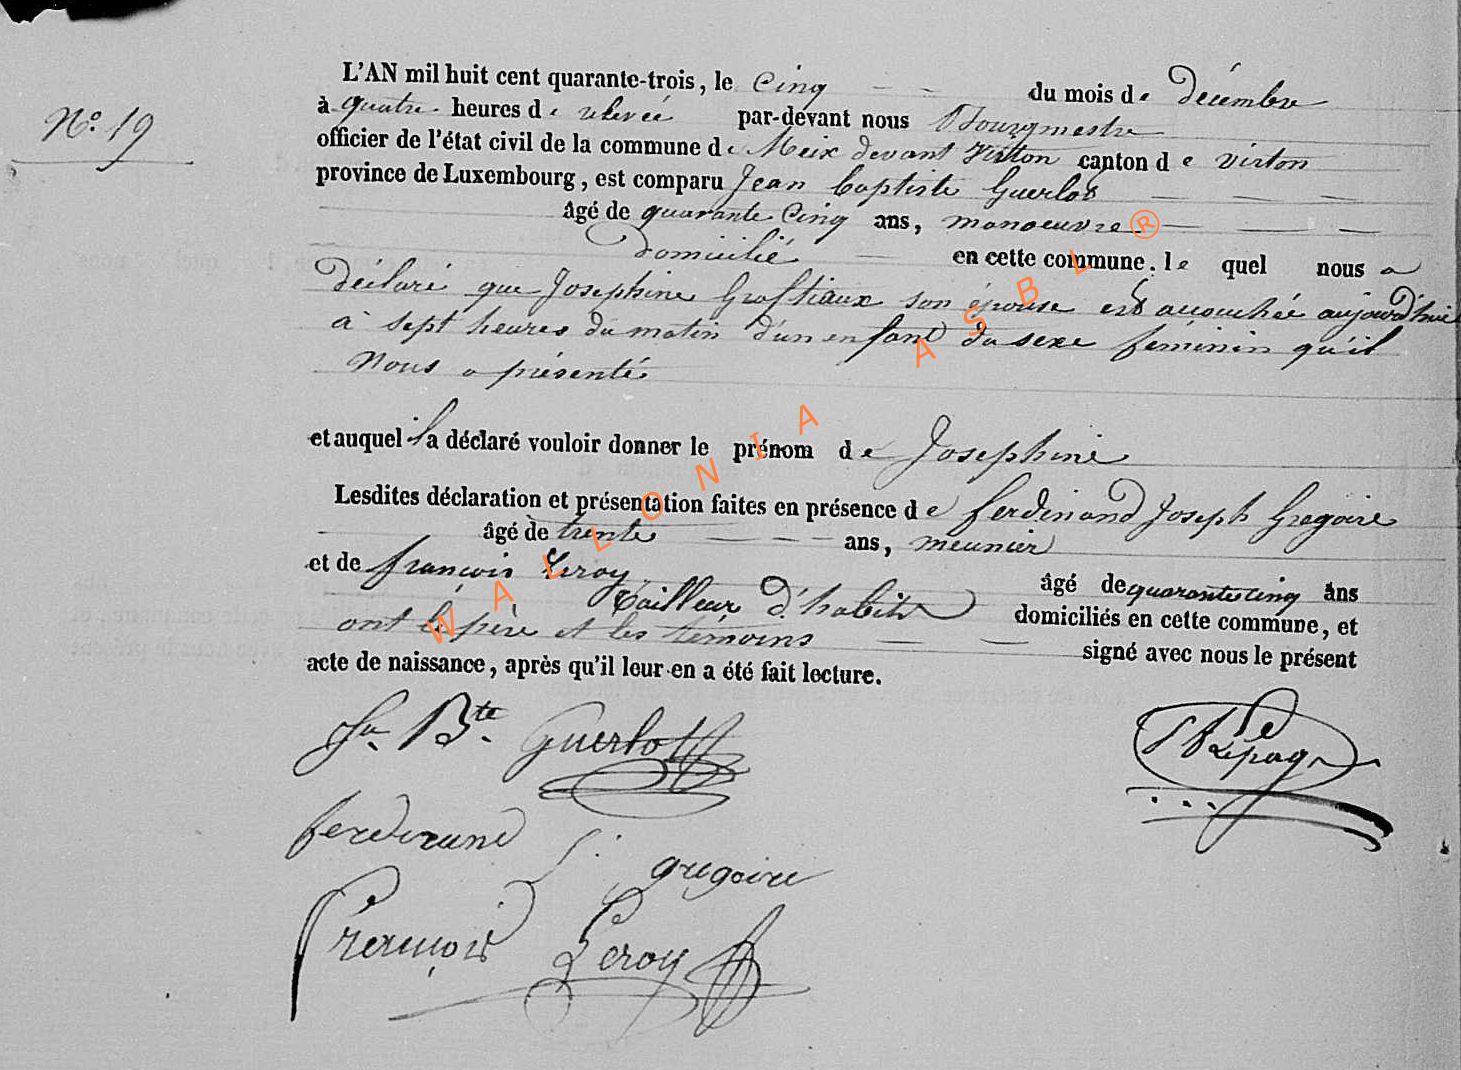 L'AN mil huit cent quarante-trois, le cinq du mois de Décembre
N° 19
à quatre heures de relevée par-devant nous Bourgmestre
officier de l'état civil de la commune de Meix devant Virton canton de virton
province de Luxembourg, est comparu Jean Baptiste Guerlot
âgé de quarante cinq ans, manoeuvre
Domicilié en cette commune. lequel nous a
Déclaré que Josephine Groftiaux son épouse est accouchée aujourd'hui
à sept heures du matin d'un enfant du sexe féminin qu'il
Nous a présenté
et auquel il a déclaré vouloir donner le prénom de Josephine
Lesdites déclaration et présentation faites en présence de ferdinand Joseph Gregoire
âgé de trente ans, meunier
et de françois Leroy âgé de quarante cinq ans
tailleur d'habits domiciliés en cette commune, et
ont le père et les témoins signé avec nous le présent
acte de naissance, après qu'il leur en a été fait lecture.
Jn Bte. Guerlot
Lepage
ferdinand J. gregoire
François Leroy
WALLONIA ASBL ®